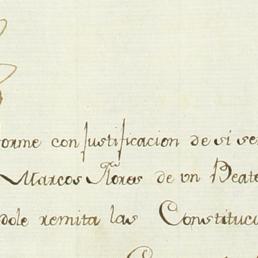 orme con justificacion de si se
Marcos Flores de vn Beate
dole remita las Constituci